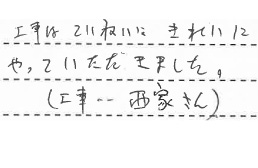 工事はていねいにきれいに
やっていただきました。
(工事‥西家さん)